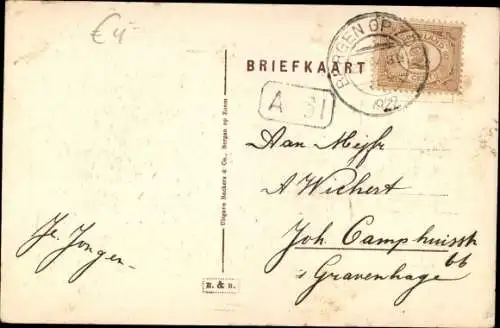 €4
BRIEFKAART
BERGEN OP ZOOM
1922
A 51
Aan Mejfr
A Wichert
Joh. Camphuisstr
66
's Gravenhage
Je. Jongen
Uitgave Beckers & Co., Bergen op Zoom
B. & B.